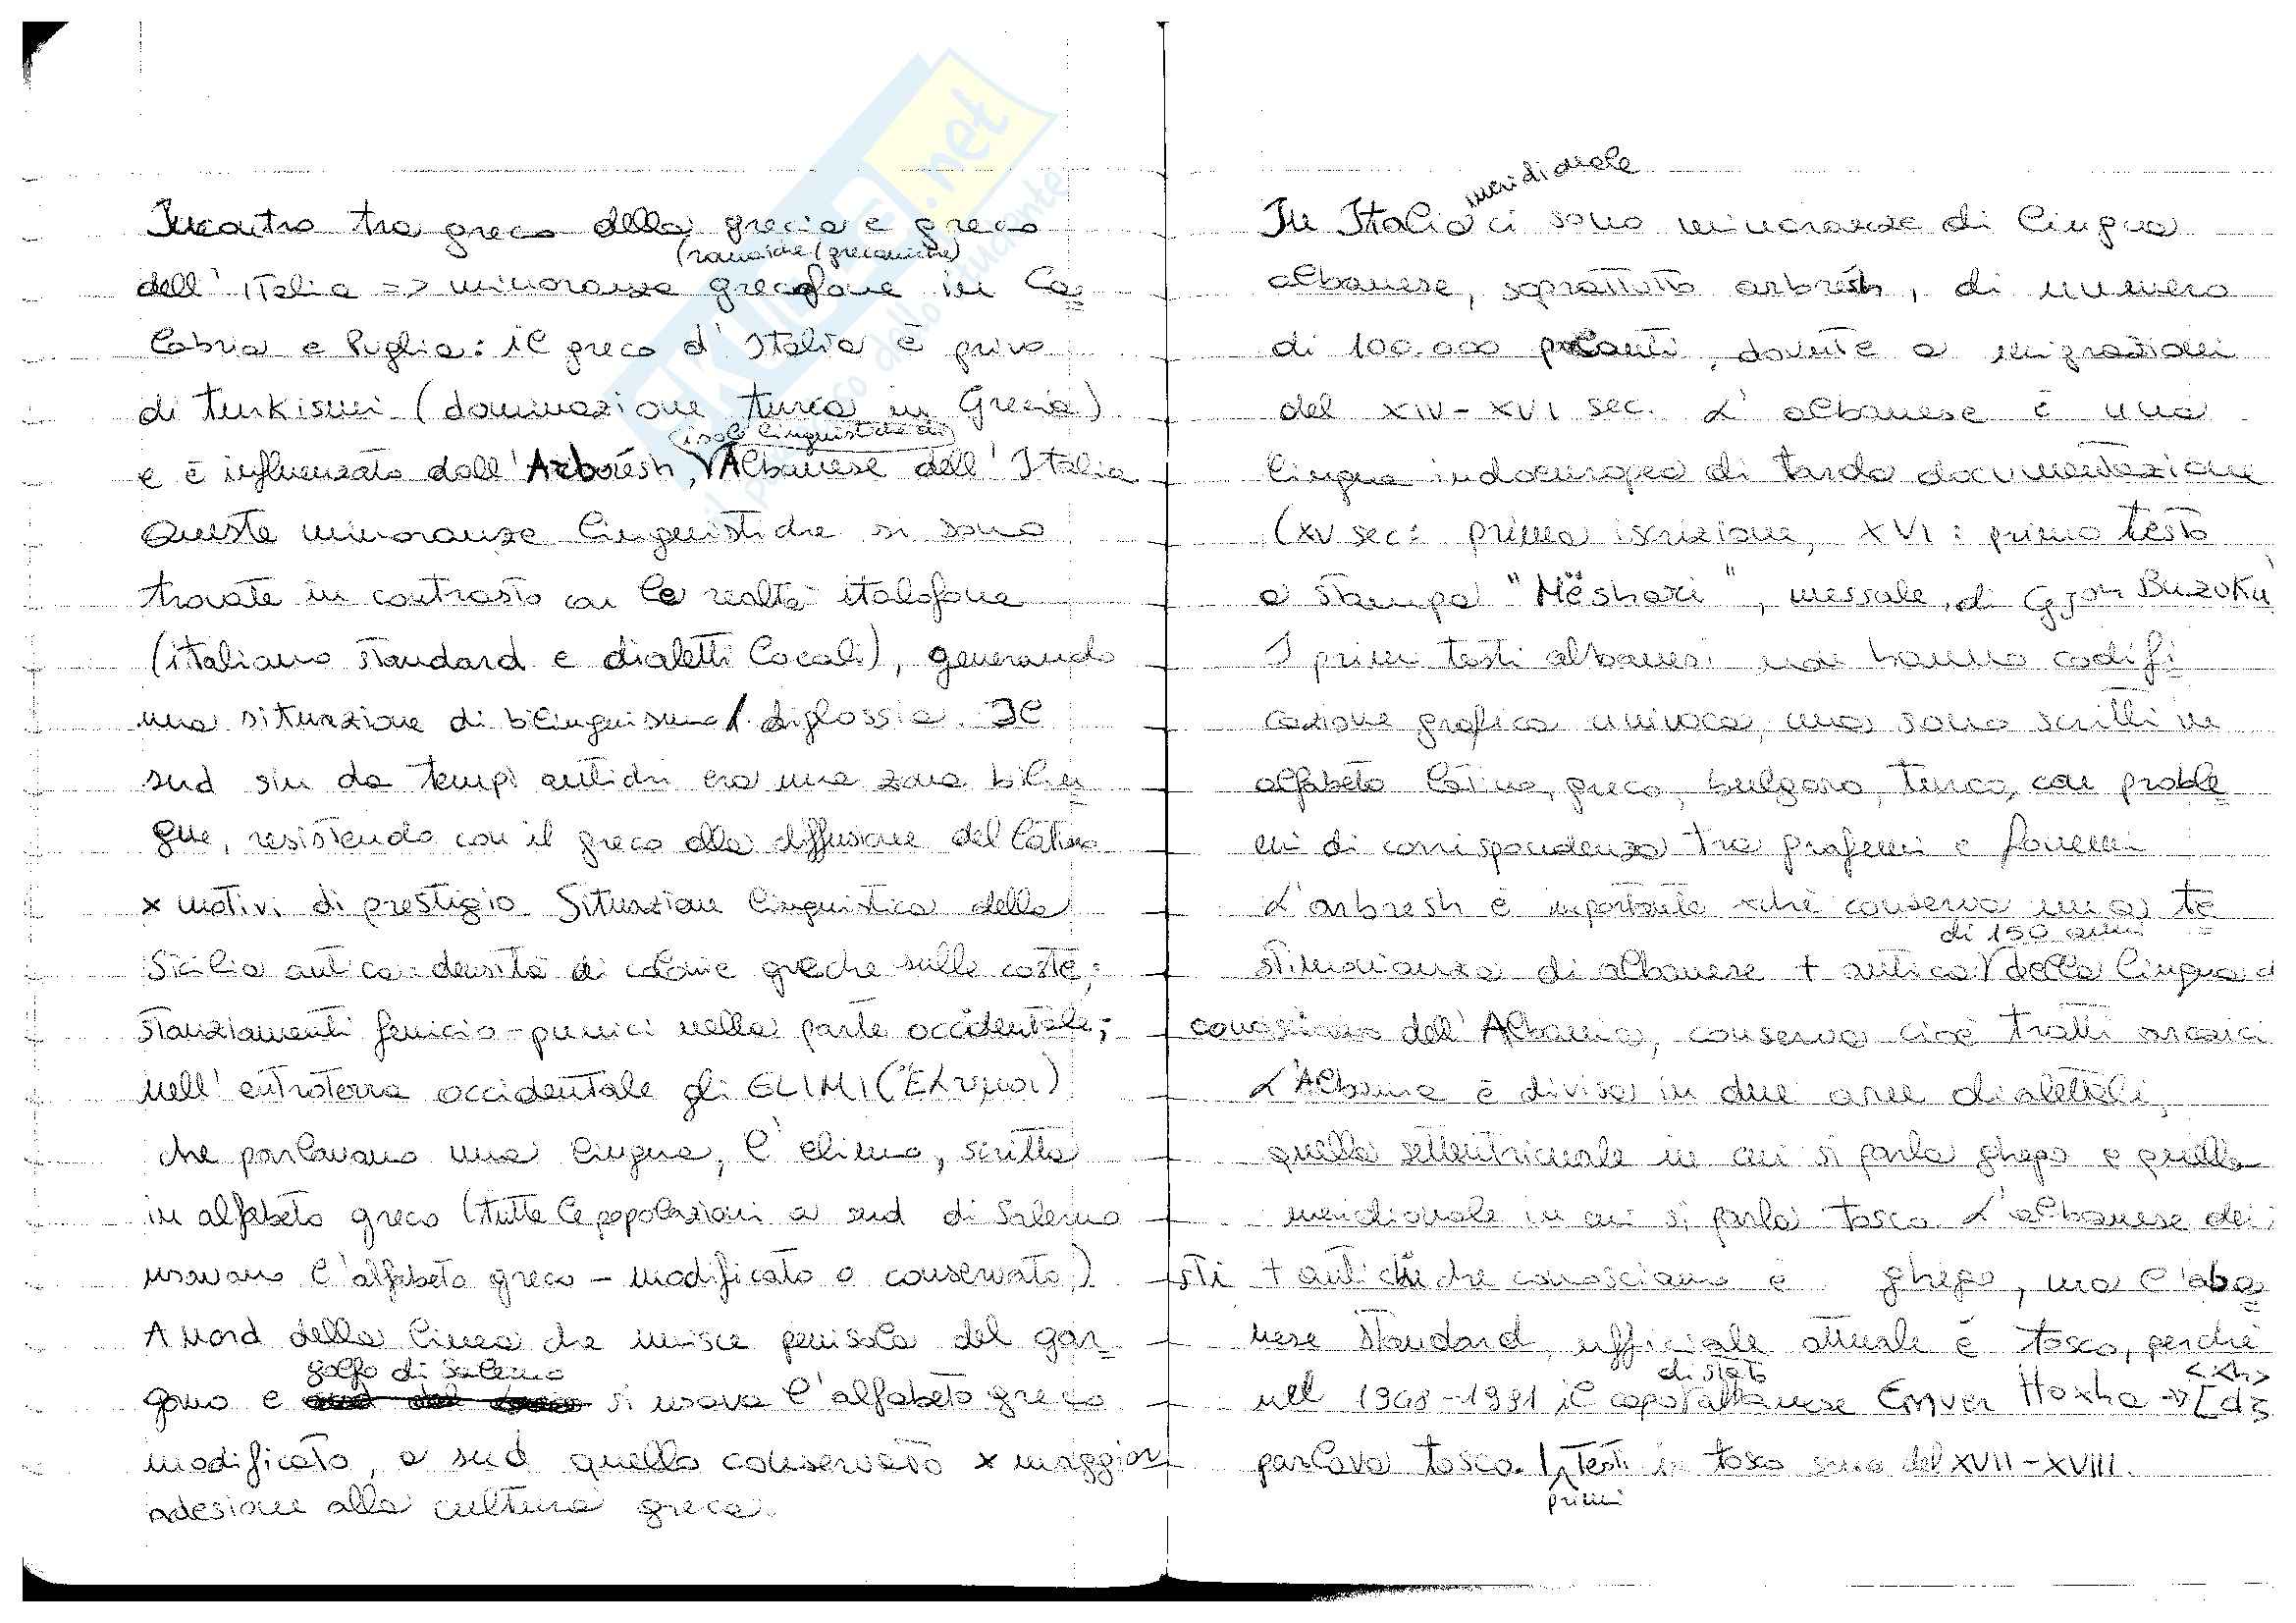 Incontro tra greco della grecia e greco
(romaiche/grecaniche)
dell'Italia => minoranze grecofone in Ca=
labria e Puglia: il greco d'Italia è privo
di turkismi (dominazione turca in Grecia)
isole linguistiche di
e è influenzato dall'Arborësh, Albanese dell'Italia
Queste minoranze linguistiche si sono
trovate in contrasto con le realtà italofone
(italiano standard e dialetti locali), generando
una situazione di bilinguismo/diglossia. Il
sud sin da tempi antichi era una zona bilin=
gue, resistendo con il greco alla diffusione del latino
x motivi di prestigio. Situazione linguistica della
Sicilia antica: densità di colonie greche sulle coste;
stanziamenti fenicio-punici nella parte occidentale;
nell'entroterra occidentale gli ELIMI (Ἔλυμοι)
che parlavano una lingua, l'elimo, scritta
in alfabeto greco (tutte le popolazioni a sud di Salerno
usavano l'alfabeto greco - modificato o conservato)
A nord della linea che unisce penisola del gar=
golfo di Salerno
gano e si usava l'alfabeto greco
modificato, a sud quello conservato x maggior
adesione alla cultura greca.
meridionale
In Italia ci sono minoranze di lingua
albanese, soprattutto arbrësh, di numero
di 100.000 parlanti, dovute a migrazioni
del XIV-XVI sec. L'albanese è una
lingua indoeuropea di tarda documentazione
(XV sec: prima iscrizione, XVI: primo testo
a stampa "Mëshari", messale, di Gjon Buzuku
I primi testi albanesi non hanno codifi=
cazione grafica univoca, ma sono scritti in
alfabeto latino, greco, bulgaro, turco, con proble=
mi di corrispondenza tra grafemi e fonemi
L'arbresh è importante xchè conserva una te=
di 150 anni
stimonianza di albanese + antica della lingua
conosciamo dell'Albania, conserva cioè tratti arcaici
L'Albania è divisa in due aree dialettali,
quella settentrionale in cui si parla ghego e quella
meridionale in cui si parla tosco. L'albanese dei
sti + antichi che conosciamo è ghego, ma l'alba=
nese standard, ufficiale attuale è tosco, perché
di stato <xh>
nel 1948-1991 il capo albanese Enver Hoxha → [dʒ
parlava tosco. I testi in tosco sono del XVII-XVIII.
primi
SKUOLA.net